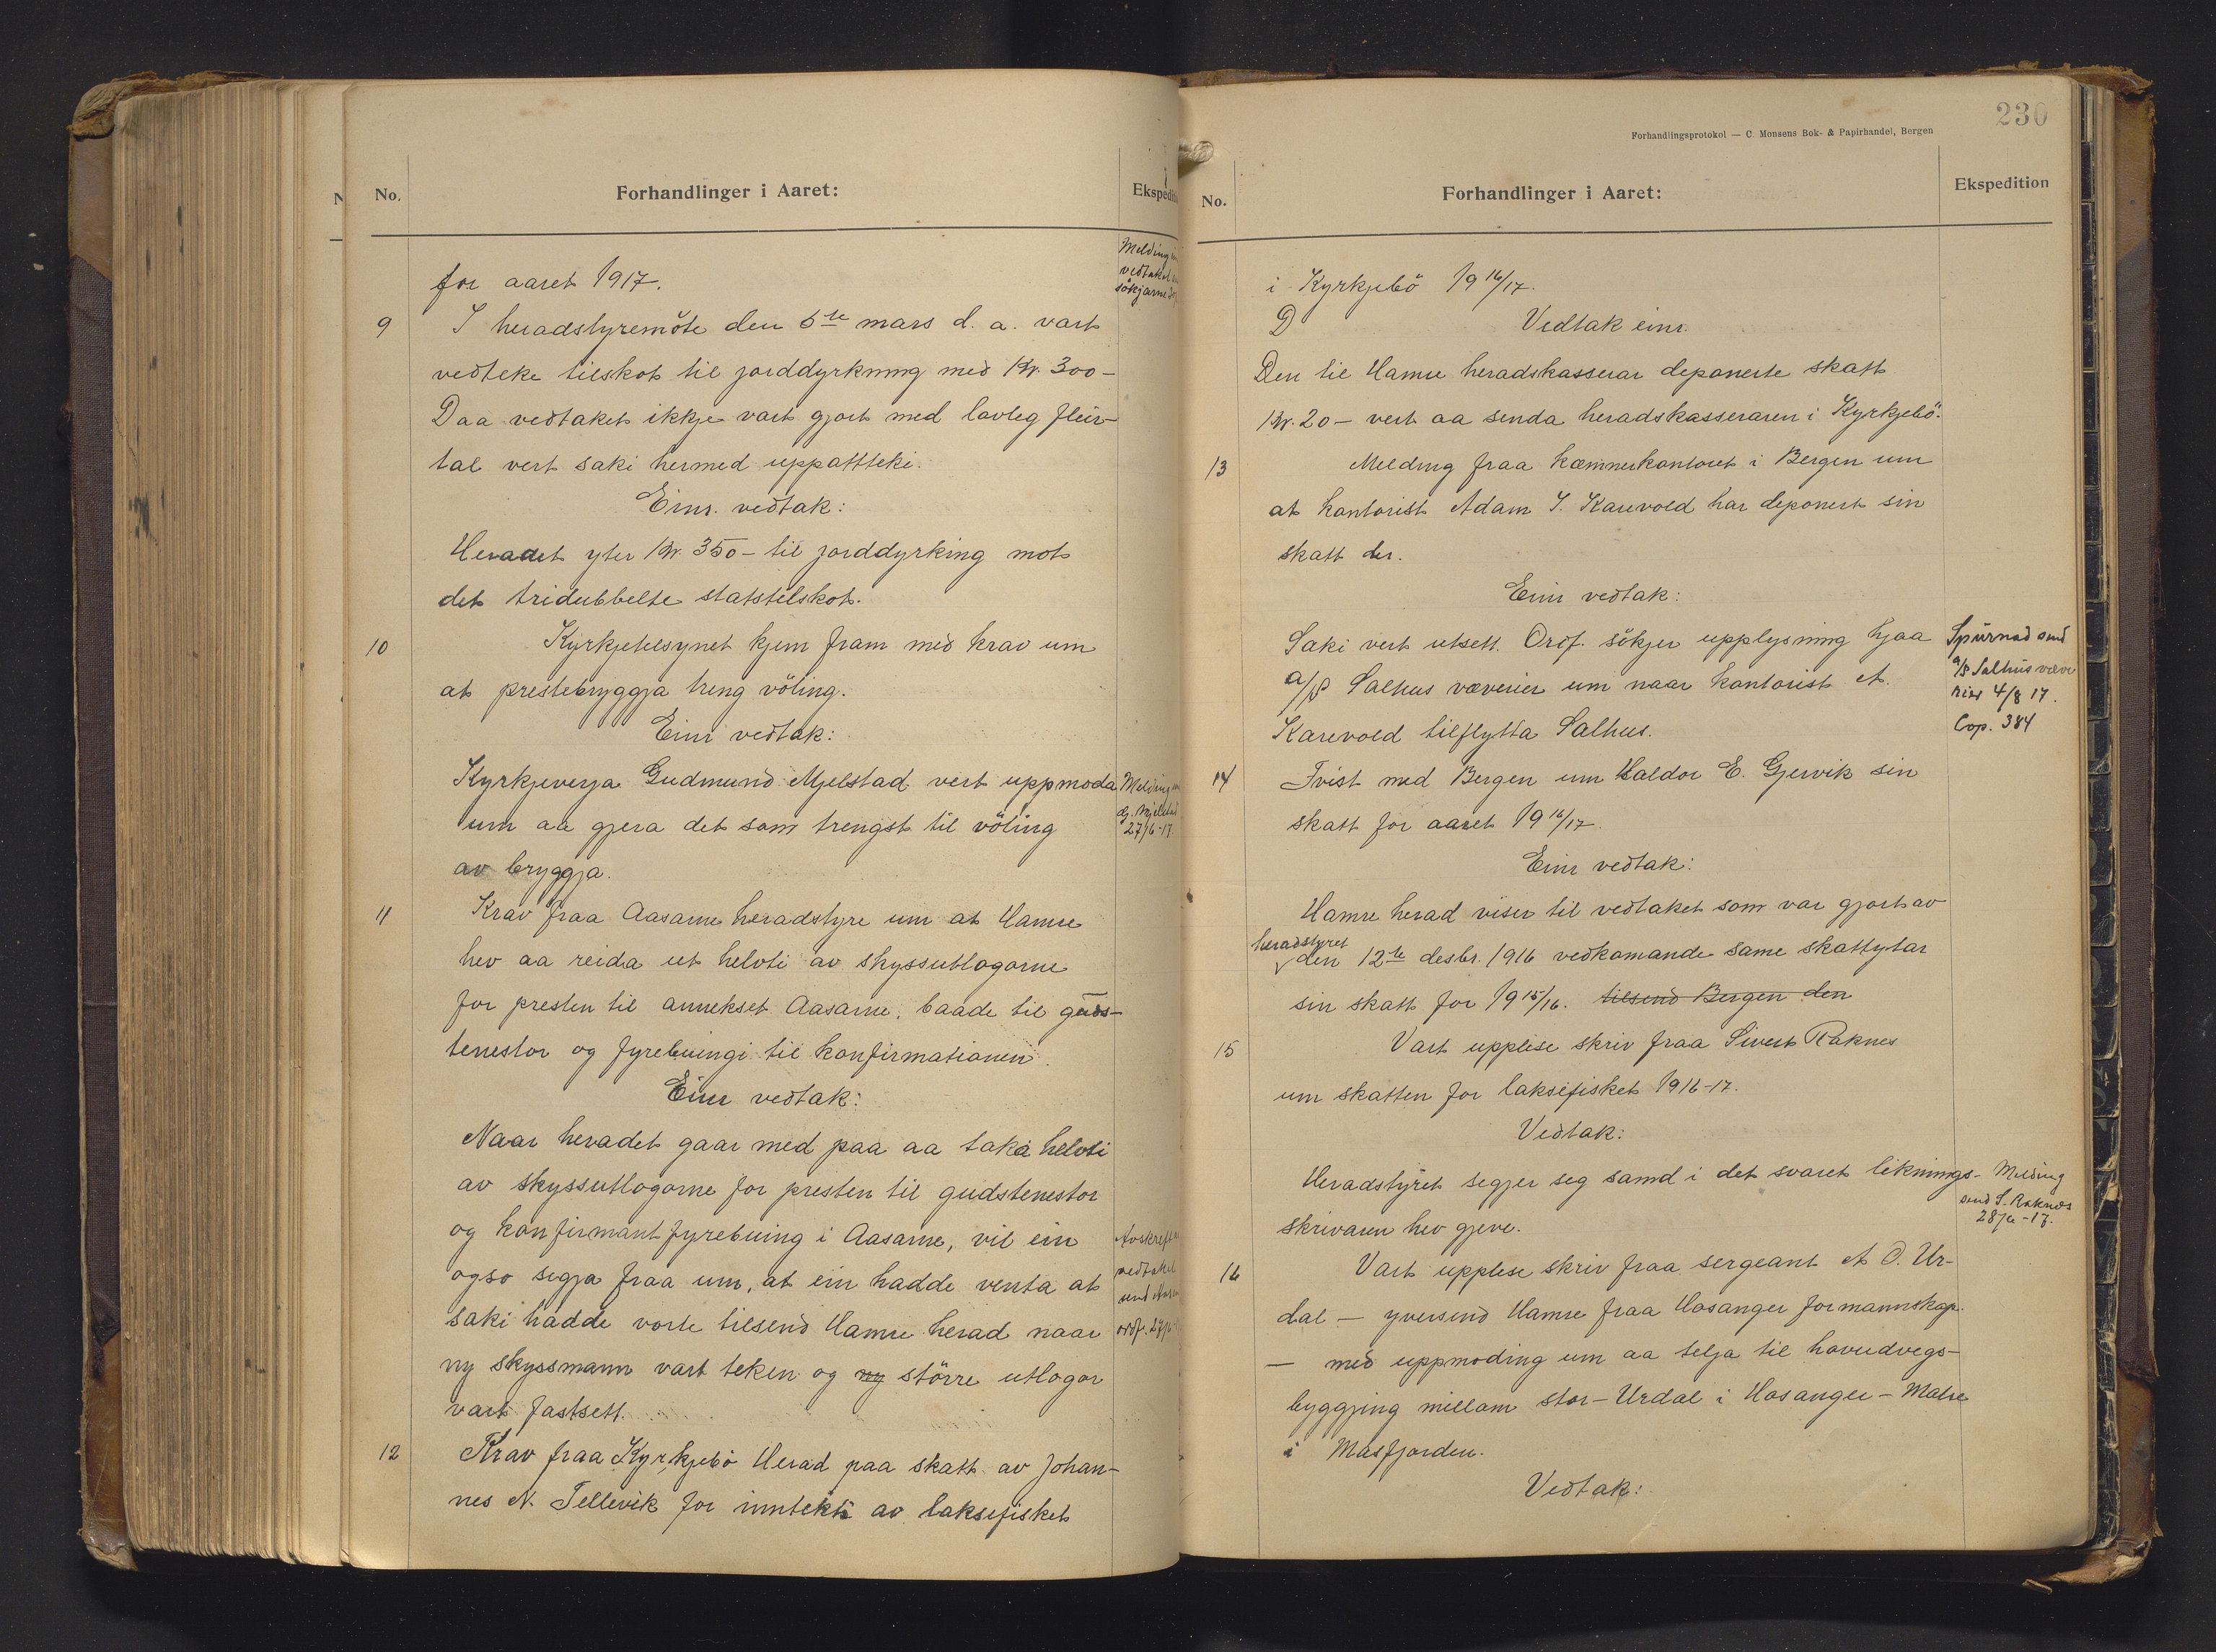 No.
Forhandlinger i Aaret:
Ekspedi
Melding
vedtaket
sökjarne
for aaret 1917.
9 I heradstyremöte den 5te mars d. a. vart
vedteke tilskot til jorddyrkning med Kr. 300-
Daa vedtaket ikkje vart gjort med lovleg fleir-
tal vert saki hermed uppattteki.
Einr. vedtak:
Heradet yter Kr. 350- til jorddyrking mot
det tridubbelte statstilskot.
10 Kyrkjetilsynet kjem fram med krav um
at prestebryggja treng vöting.
Einr vedtak:
Kyrkjeverja Gudmund Mjelstad vert uppmoda
um aa gjera det som trengst til vöting
av bryggja.
Melding
G. Mjelstad
27/6-17
11 Krav fraa Aasarne heradstyre um at Hamre
hev aa reida ut helvti av skyssutlogorne
for presten til annekset Aasarne, baade til guds-
tenestor og fyrebuingi til konfirmationen.
Einr vedtak:
Naar heradet gaar med paa aa taka helvti
av skyssutlogorne for presten til gudstenestor
og konfirmantfyrebuing i Aasarne, vil ein
ogso segja fraa um, at ein hadde venta at
saki hadde vorte tilsend Hamre herad naar
ny skyssmann vart teken og ny större utlogor
vart fastsett.
Avskrift
vedtaket
send
ordf. 27/6
12 Krav fraa Kyrkjebö Herad paa skatt av Johan-
nes N. Tellevik for inntekti av laksefisket
230
Forhandlingsprotokol — C. Monsens Bok- & Papirhandel, Bergen
No.
Forhandlinger i Aaret:
Ekspedition
i Kyrkjebö 1916/17.
D Vedtak einr.
Den til Hamre heradskasserar deponerte skatt
Kr. 20- vert aa senda heradskasseraren i Kyrkjebö.
13 Melding fraa kæmnerkontoret i Bergen um
at kontorist Adam I. Karevold har deponert sin
skatt der.
Einr vedtak:
Saki vert utsett. Ordf. sökjer upplysning hjaa
a/s Salhus væverier um naar kontorist A.
Karevold tilflytta Salhus.
Spurnad send
a/s Salhus væve
rier 4/8 17.
Cop. 384
14 Tvist med Bergen um Haldor E. Gjervik sin
skatt for aaret 1916/17.
Einr vedtak:
Hamre herad viser til vedtaket som var gjort av
heradstyret
den 12te desbr. 1916 vedkomande same skattytar
sin skatt for 1915/16. tilsend Bergen den
15 Vart upplese skriv fraa Sivert Raknes
um skatten for laksefisket 1916-17.
Vedtak:
Heradstyret segjer seg samd i det svaret liknings-
skrivaren hev gjeve.
Melding
send S. Raknes
28/6-17.
16 Vart upplese skriv fraa sergeant A. O. Ur-
dal — yversend Hamre fraa Hosanger formannskap.
— med uppmoding um aa telja til hovudvegs-
byggjing millom stor-Urdal i Hosanger - Matre
i Masfjorden.
Vedtak: